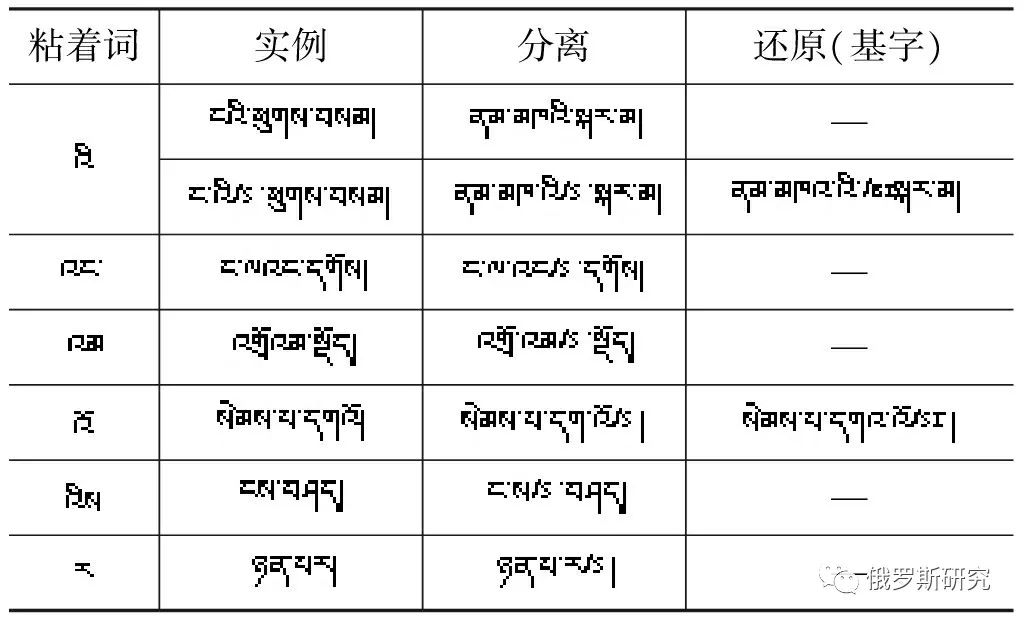 粘着词 实例 分离 还原(基字)
འི ངའི་ཕུགས་བསམ། ནམ་མཁའི་སྐར་མ། —
ང་འི/s ་ཕུགས་བསམ། ནམ་མཁ་འི/s ་སྐར་མ། ནམ་མཁའ་འི་/སྐར་མ།
འང་ ང་ལའང་དགོས། ང་ལ་འང/s ་དགོས། —
འམ འགྲོའམ་སྡོད། འགྲོ་འམ/s ་སྡོད། —
འོ སེམས་པ་དགའོ། སེམས་པ་དག་འོ/s། སེམས་པ་དགའ་འོ/sɪ།
འིས ངས་བཤད། ང་ས/s ་བཤད། —
ར ཉན་པར། ཉན་པ་ར/s། —
俄罗斯研究